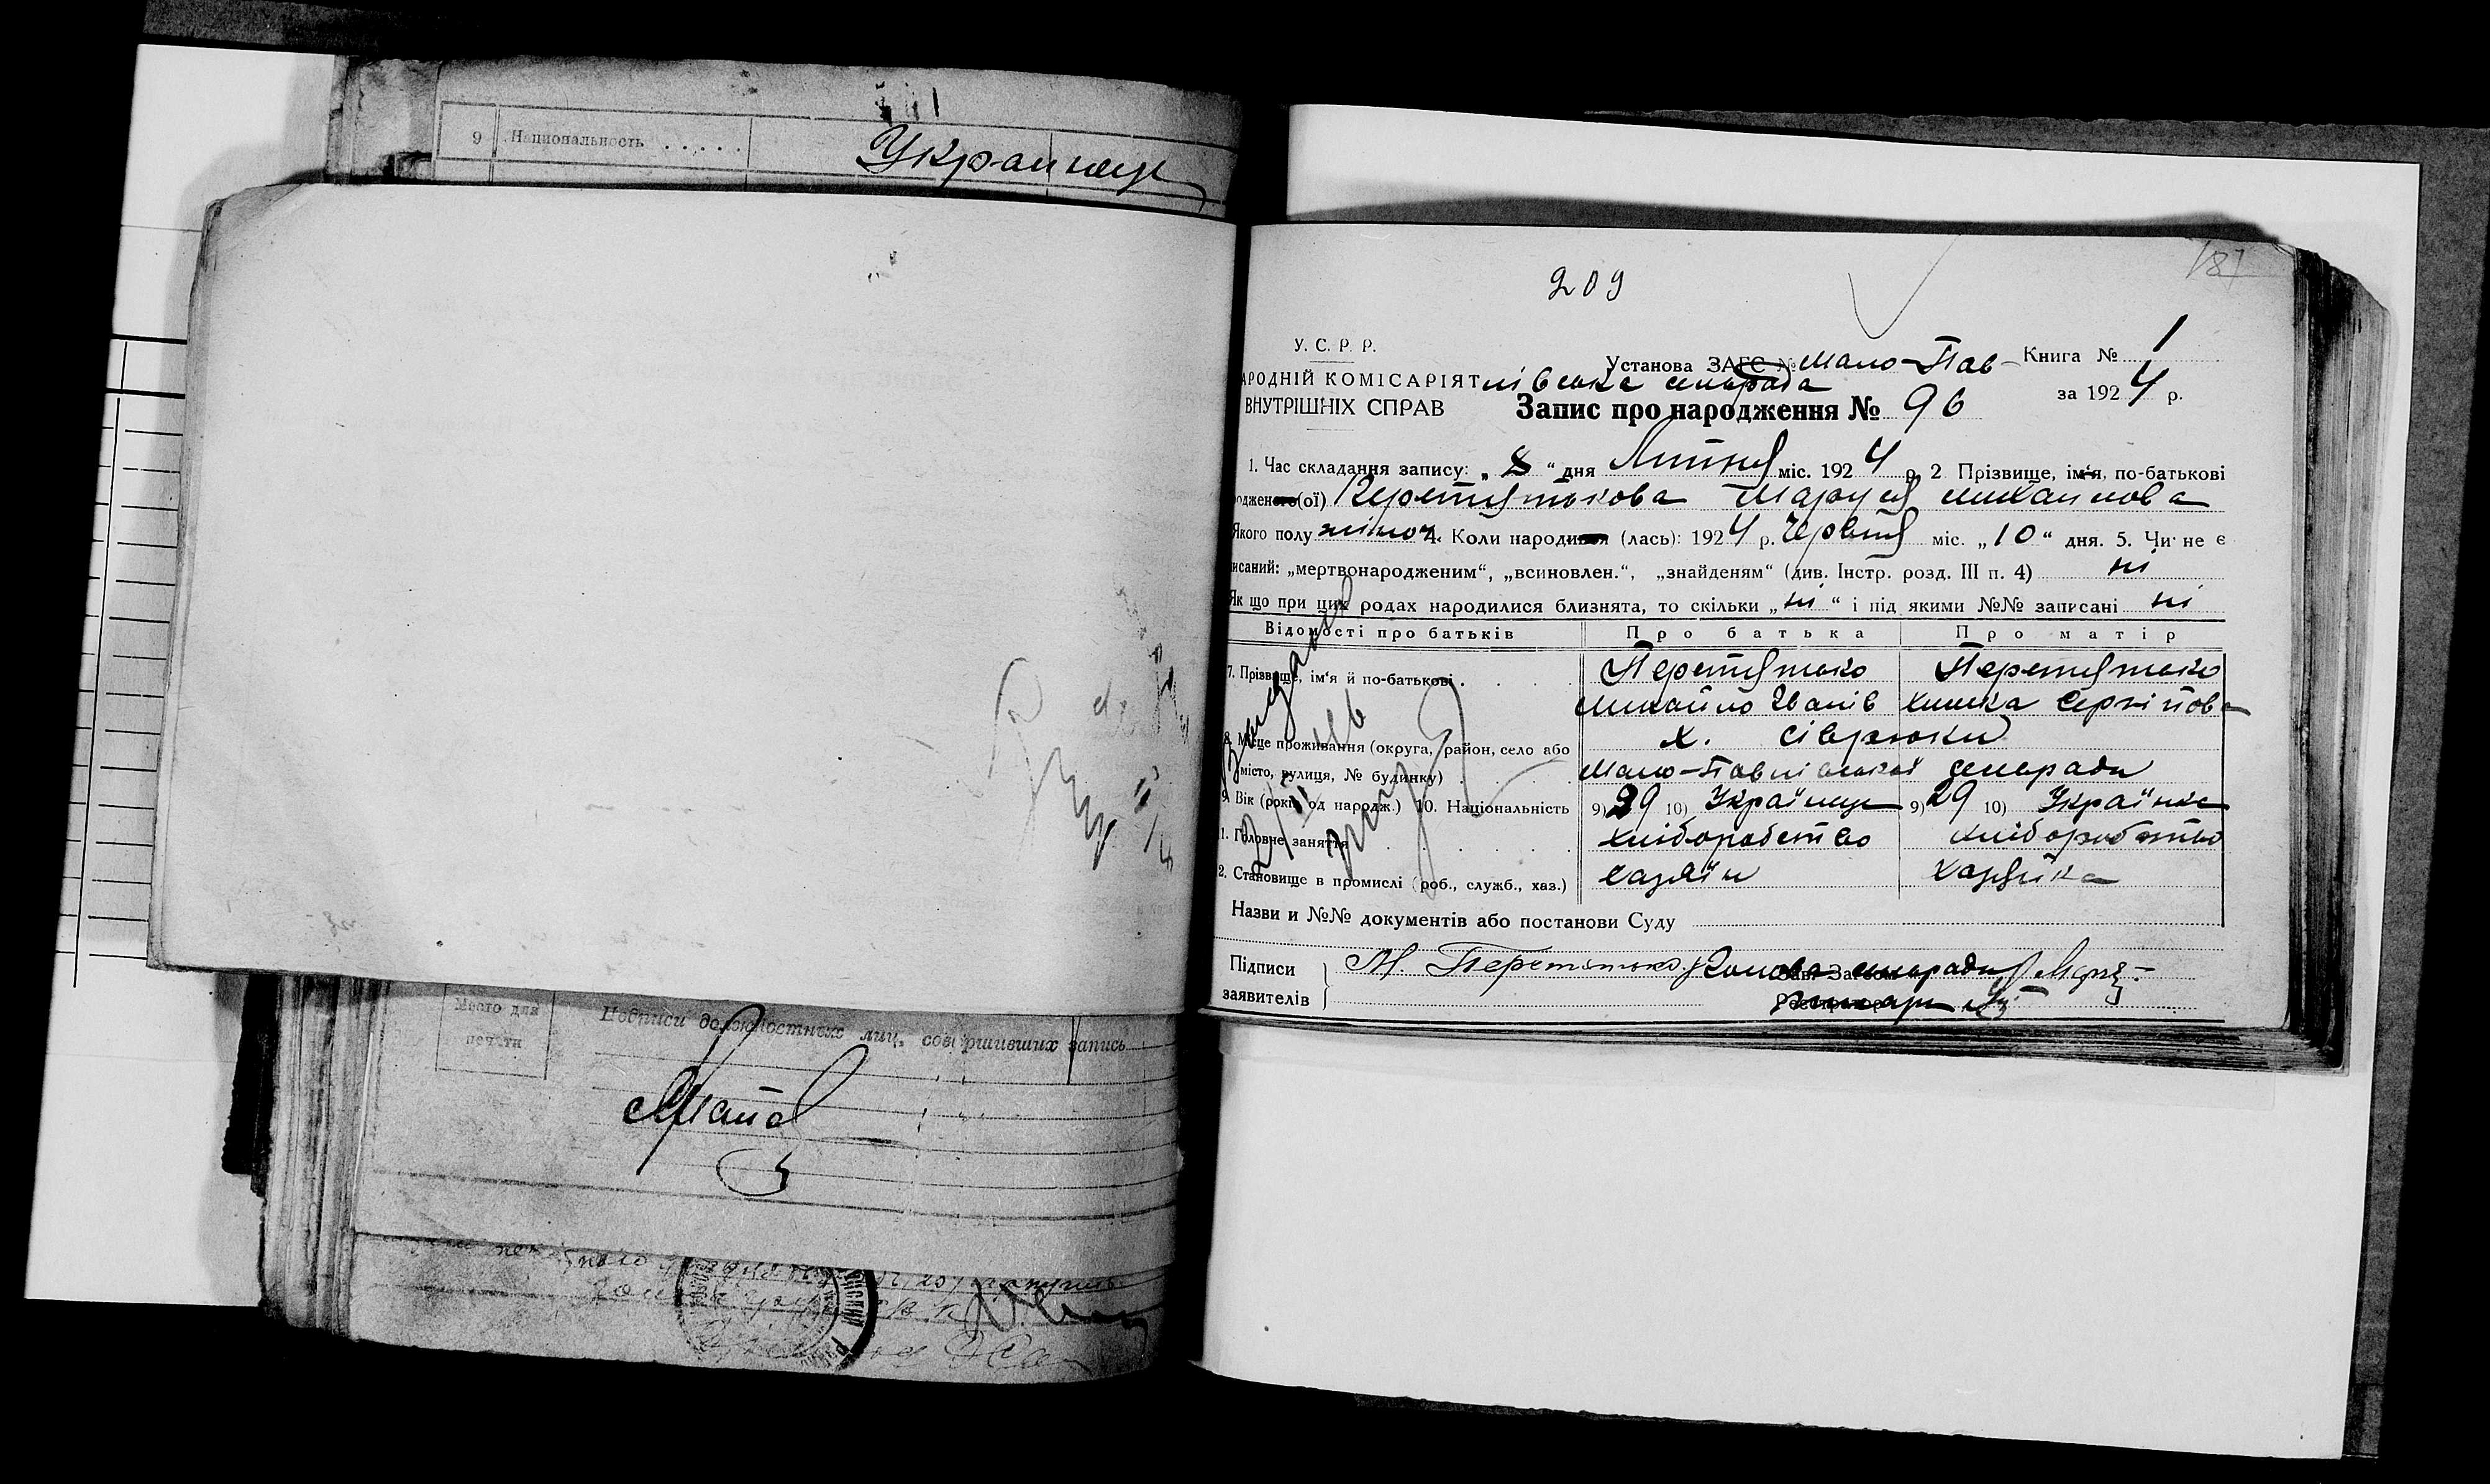 9 Национальность . . . . .
Украинец
209
181
У. С. Р. Р.
Установа ЗАГС № Мало-Пав-
Книга № 1
АРОДНІЙ КОМІСАРІЯТ
лівська сільрада
за 1924 р.
ВНУТРІШНІХ СПРАВ
Запис про народження № 96
1. Час складання запису: „8“ дня Липня міс. 1924 р. 2 Прізвище, ім'я, по-батькові
одженого(ої) Перетятькова Маруся Михайлова
Якого полу жіноч. 4. Коли народився (лась): 1924 р. Червня міс. „10“ дня. 5. Чи не є
исаний: „мертвонародженим“, „всиновлен.“, „знайденям“ (див. Інстр. розд. III п. 4) ні
Як що при цих родах народилися близнята, то скільки „ні“ і під якими №№ записані ні
Відомості про батьків Про батька Про матір
7. Прізвище, ім'я й по-батькові . . . Перетятько Перетятько
Михайло Іванів Химка Сергіїова
8. Місце проживання (округа, район, село або х. Сіврюки
місто, вулиця, № будинку) . . . Мало-Павлівської сільради
9. Вік (років од народж.) 10. Національність 9) 29 10) Українець 9) 29 10) Українка
1. Головне заняття . . . . . хліборобство хліборобство
2. Становище в промислі (роб., служб., хаз.) хазяїн хазяйка
Назви и №№ документів або постанови Суду
Підписи
заявителів
М. Перетятько
Голова сільради
Зав. Загсом
Секретарь
Место для
печати
Подписи должностных лиц, совершивших запись